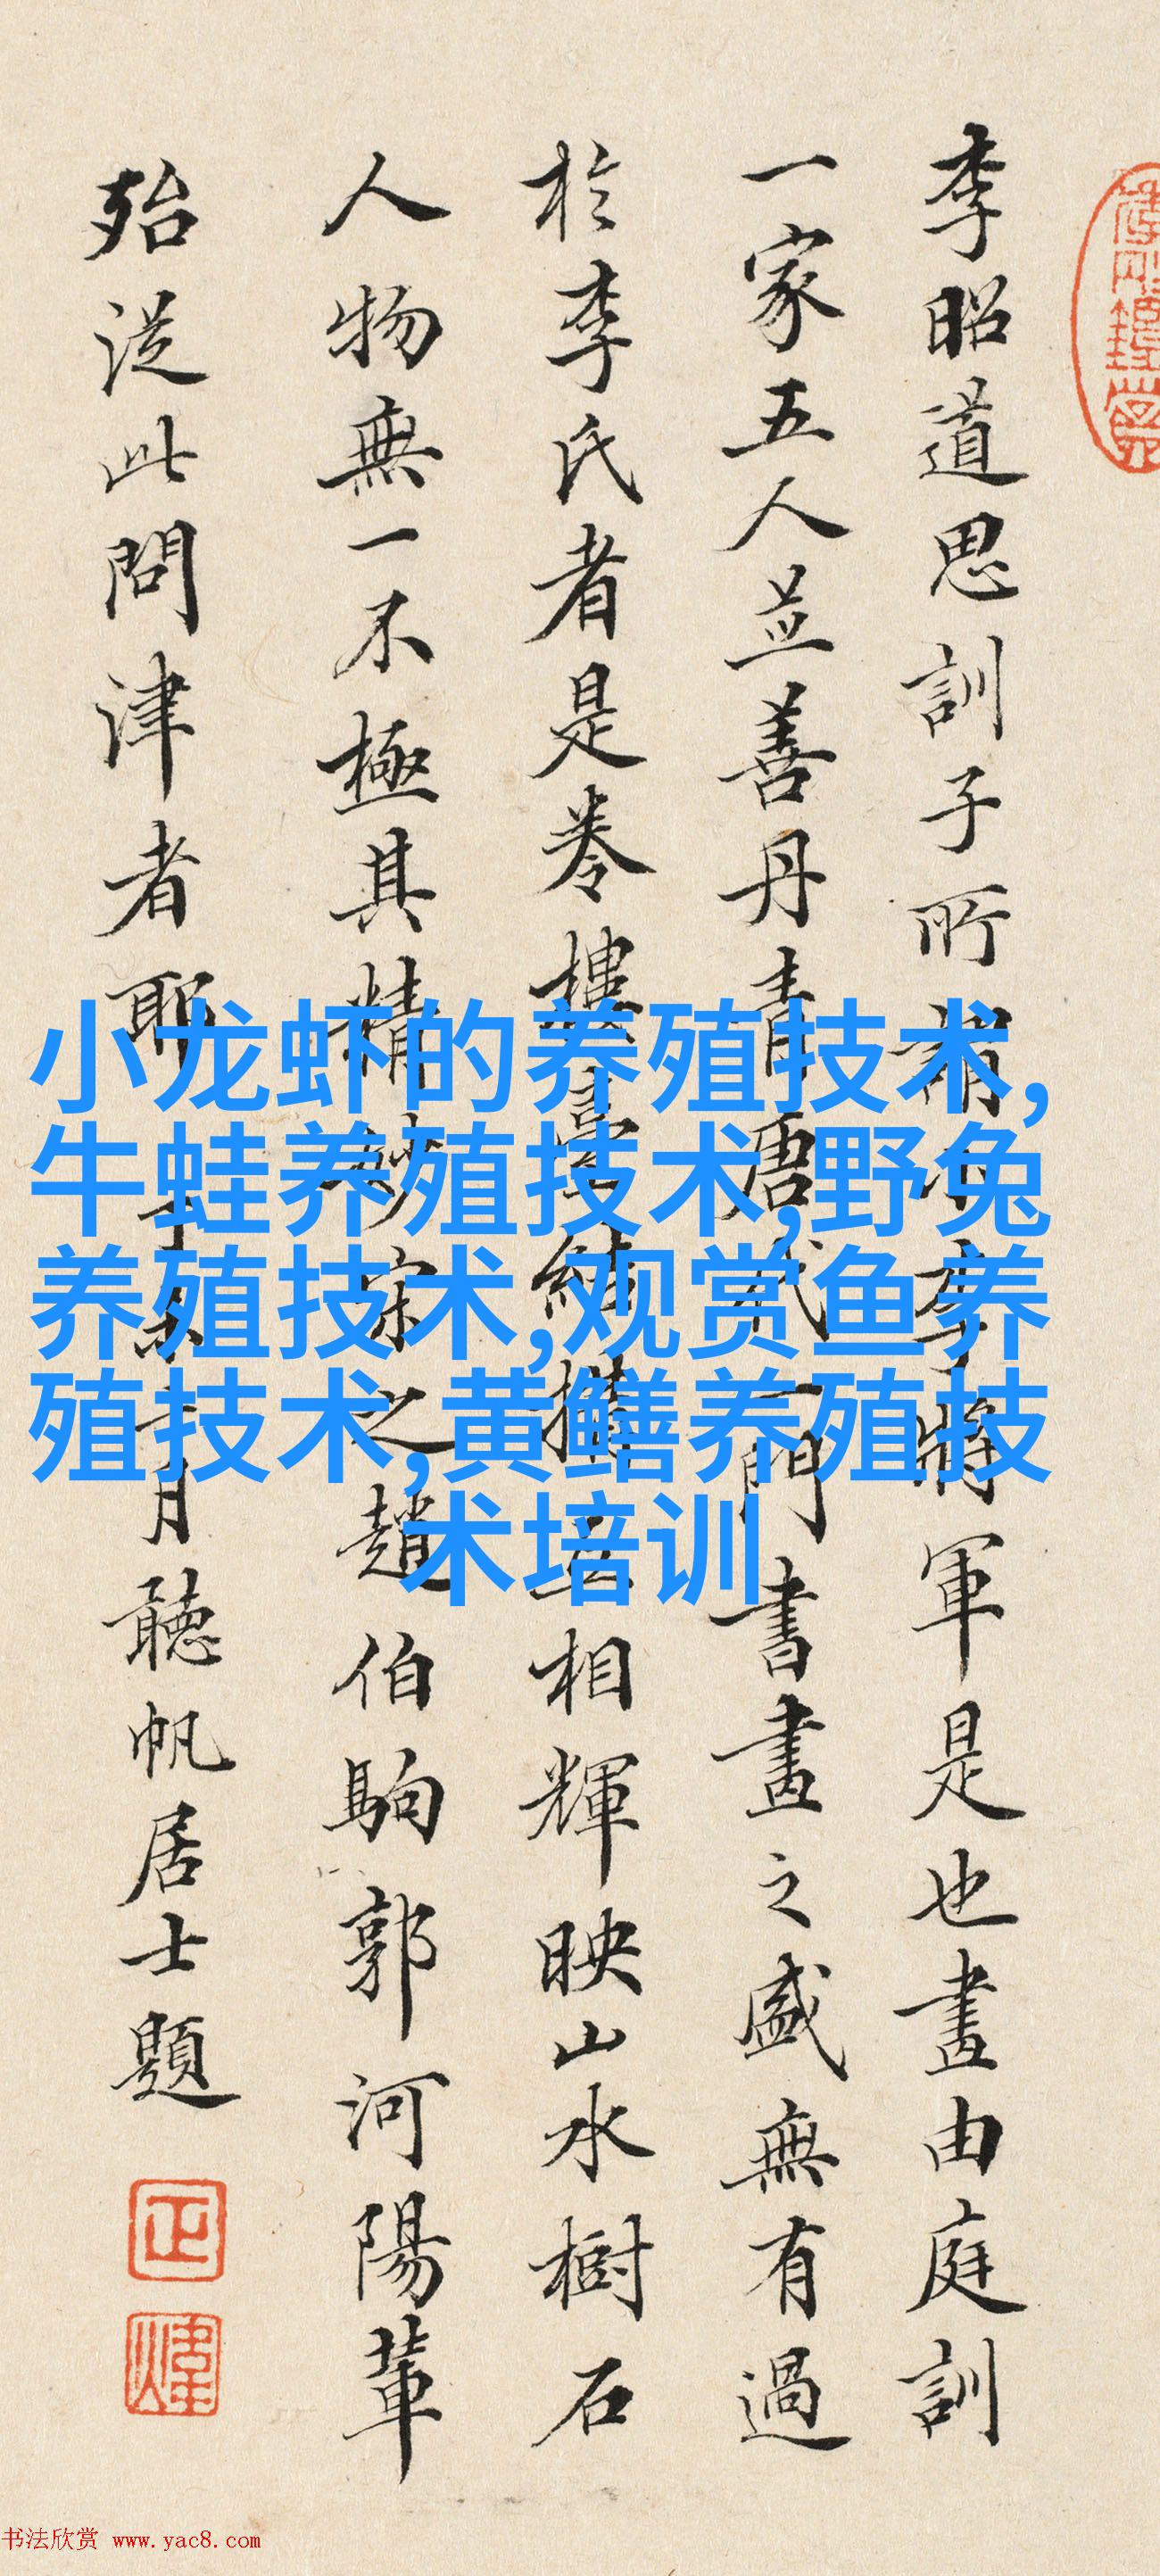 李昭道思訓子所稱小李將軍是也畫由庭訓
一家五人並善丹青唐代一門書畫之盛無有過
於李氏者是卷樓臺結構互相輝映山水樹石
人物無一不極其精妙宋之趙伯駒郭河陽輩
殆從此問津者耶 月聽帆居士題
小龙虾的养殖技术,
牛蛙养殖技术,野兔
养殖技术,观赏鱼养
殖技术,黄鳝养殖技
术培训
书法欣赏 www.yac8.com